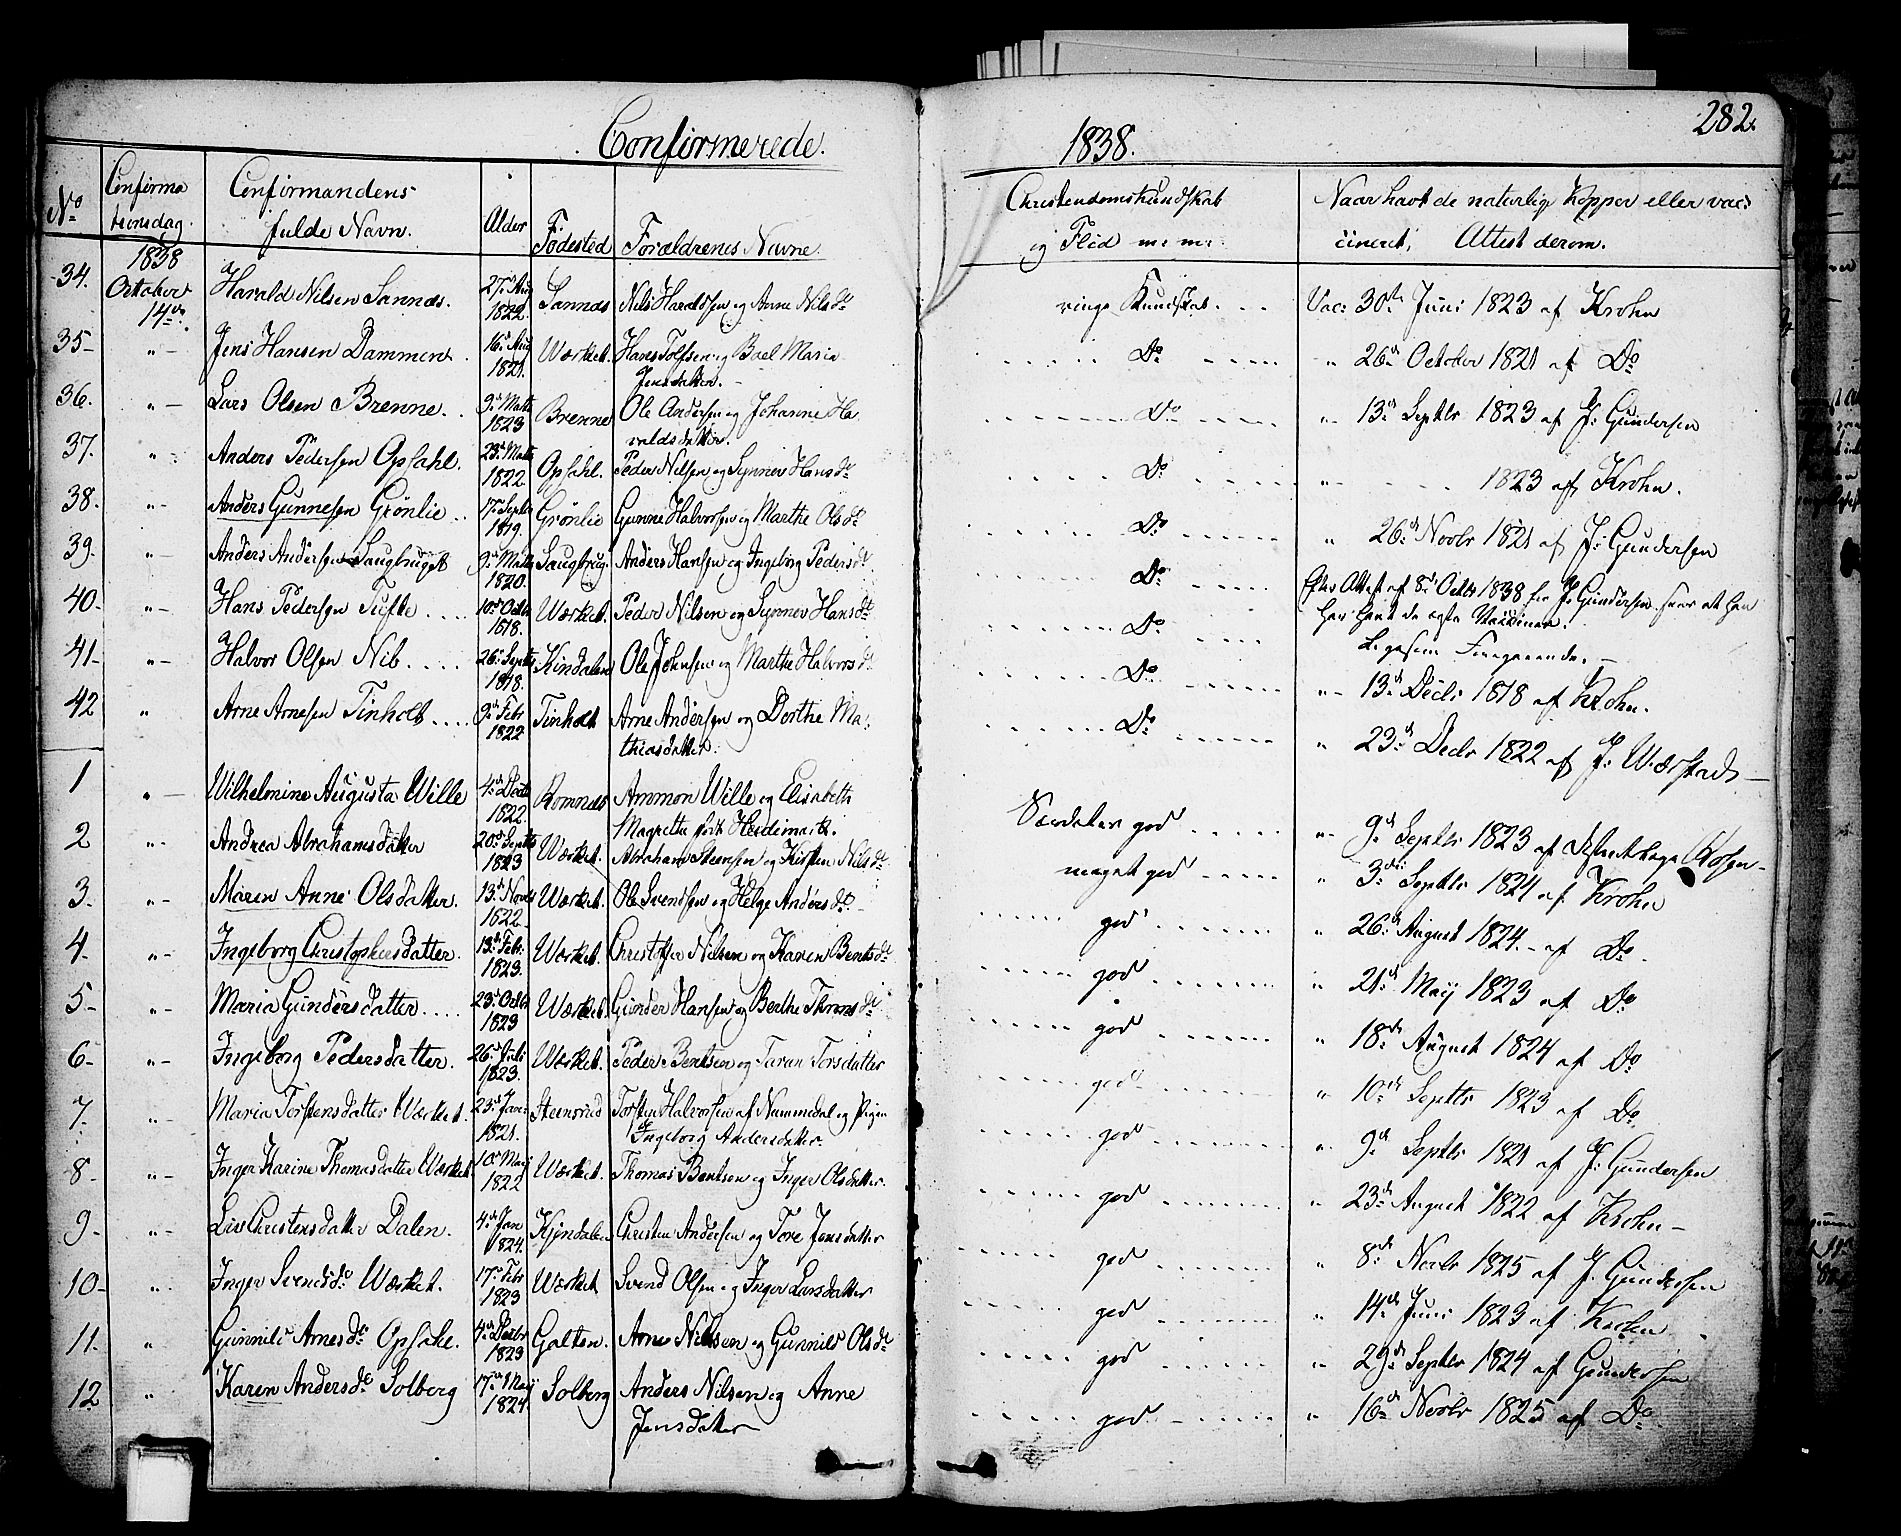 282.
Confirmerede. 1838.
No Confirmationsdag. Confirmandens fulde Navn. Alder Födested Forældrenes Navne. Christendomskundskab og Flid m: m: Naar havt de naturlige Kopper eller vaccineret, Attest derom.
1838 October 14de
34. Harald Nilsen Sannæs. 27de Aug 1822. Sannæs Nils Haraldsen og Anne Nilsdr ringe Kundskab... Vac: 30te Juni 1823 af Krohn
35 " Jens Hansen Dammen. 16de Aug 1821. Værket. Hans Tolfsen og Boel Maria Jensdatter. Do " 26de October 1821 af Do
36. " Lars Olsen Brenne. 9de Marts 1823 Brenne Ole Andersen og Johanne Haraldsdatter. Do " 13de Septbr 1823 af J: Gundersen
37. " Anders Pedersen Opsahl. 23de Marts 1822. Opsahl. Peder Nilsen og Synnøv Hansdr Do " 1823 af Krohn.
38. " Anders Gunnesen Grönlie.. 17de Septbr 1819. Grönlie Gunne Halvorsen og Marthe Olsdr Do " 26de Novbr 1821 af J: Gundersen
39. " Anders Andersen Saugbruget 9de Marts 1820. Saugbrug. Anders Hansen og Ingeborg Pedersdr Do Efter Attest af 8de Octbr 1838 fra J: Gundersen har havt de ægte Vaccine.
40 " Hans Pedersen Tufte.... 10de Octbr 1818. Værket. Peder Nilsen og Synnøv Hansdr Do Ligesom Foregaaende.
41 " Halvor Olsen Nib.... 26de Septbr 1818. Kindalen Ole Johnsen og Marthe Halvorsdr Do " 13de Decbr 1818 af Krohn.
42 " Arne Arnesen Tinholt.... 9de Febr 1822 Tinholt Arne Andersen og Dorthe Mathiasdatter. Do " 23de Decbr 1822 af J: Wærstad
1 " Wilhelmine Augusta Wille 4de Decbr 1822. Romnæs Ammon Wille og Elisabeth Magrethe født Heidemark. Særdeles god " 9de Septbr 1823 af Districtslæge Hosen
2 " Andrea Abrahamsdatter 20de Septbr 1823 Værket. Abraham Steensen og Kirsten Nilsdr meget god " 3die Septbr 1824 af Krohn
3. " Maren Anne Olsdatter. 13de Novbr 1822. Værket. Ole Svendsen og Helge Andersdr god " 26de August 1824 af Do
4. " Ingeborg Christophersdatter. 13de Febr. 1823. Værket. Christoffer Nilsen og Karen Bentsdr god " 21de Maij 1823 af Do
5 " Maria Gundersdatter.... 23de Octbr 1823 Værket. Gunder Hansen og Berthe Thronsdr god " 18de August 1824 af Do
6 " Ingeborg Pedersdatter. 26de Juli 1823. Værket. Peder Bentsen og Taran Torsdatter god " 10de Septbr 1823 af Do
7. " Maria Torstensdatter Værket. 23de Janr. 1821. Steensrud Torsten Halvorsen af Nummedal og Pigen Ingeborg Andersdatter god " 9de Septbr 1821 af J: Gundersen
8 " Inger Karine Thomasdatter Værket. 10de Maij 1822 Værket. Thomas Bentsen og Inger Olsdatter. god " 23de August 1822 af Krohn
9 " Liv Christensdatter Dalen. 4de Jan 1824. Kjendalen Christen Andersen og Tore Jensdatter god " 8de Novbr 1825 af J. Gundersen
10 " Inger Svendsdr Værket. 17de Febr 1823 Værket Svend Olsen og Inger Larsdatter god " 14de Juni 1823 af Krohn
11. " Gunnild Arnesdr Opsahl. 4de Decbr 1823 Galten. Arne Nilsen og Gunnild Olsdr god " 29de Septbr 1824 af Gundersen
12 " Karen Andersdr Solberg 17de Maij 1824. Solberg Anders Nilsen og Anne Jensdatter god " 16de Novbr 1825 af Do